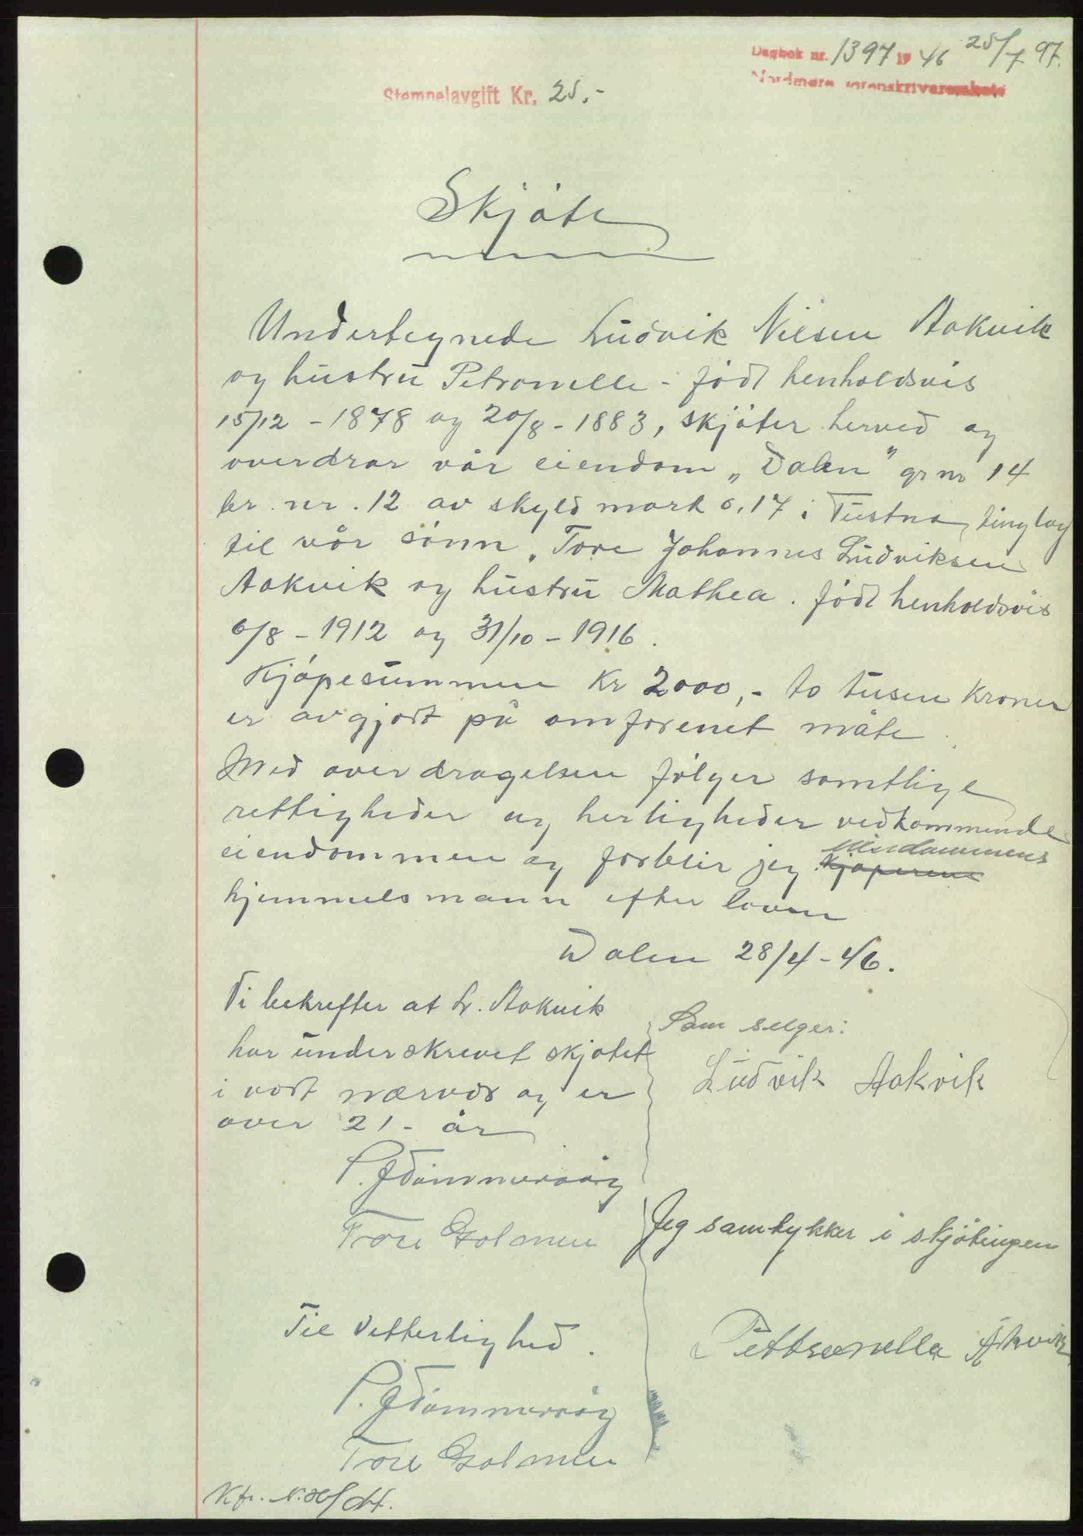 Dagbok nr. 1397 19 46 25/7 97.
Nordmøre sorenskriverembete
Stempelavgift Kr. 25.-
Skjøte
Undertegnede Ludvik Nilsen Aakvik
og hustru Petronelle - født henholdsvis
15/12 - 1878 og 20/8 - 1883, skjøter herved og
overdrar vår eiendom „Dalen" gr nr 14
br. nr. 12 av skyld mark 0,17 i Tustna tinglag
til vår sønn, Tore Johannes Ludviksen
Aakvik og hustru Mathea. født henholdsvis
6/8 - 1912 og 31/10 - 1916.
Kjøpesummen Kr 2000,- to tusen kroner
er avgjort på omforenet måte.
Med overdragelsen følger samtlige
rettigheder og herligheder vedkommende
eiendommen og forblir jeg kjøperens eiendommens
hjemmelsmann efter loven
Dalen 28/4 - 46.
Vi bekrefter at L. Aakvik
har underskrevet skjøtet
i vort nærvær og er
over 21 - år
Som selger:
Ludvik Aakvik
Tore Golmen
Jeg samtykker i skjøtingen
Til Vitterlighed.
Pettronella Åkvik
Tore Golmen